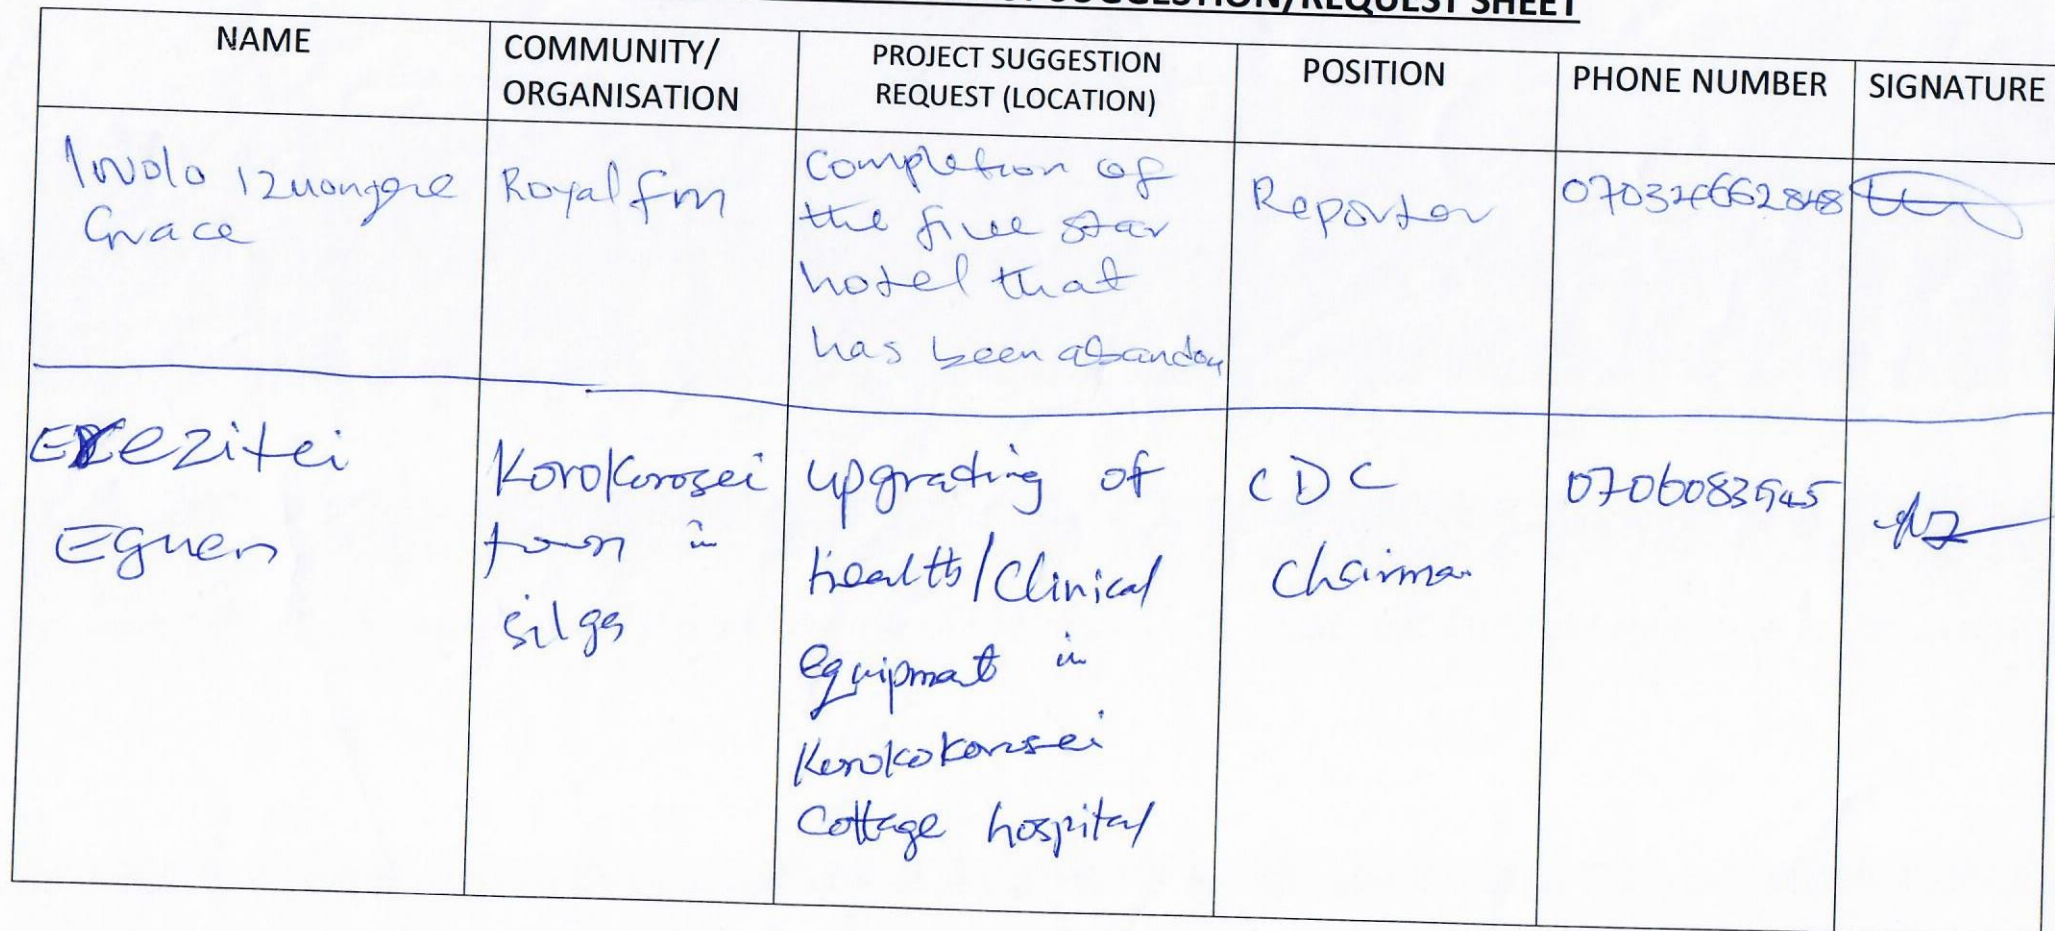 SUGGESTION/REQUEST SHEET
NAME
COMMUNITY/
ORGANISATION
PROJECT SUGGESTION
REQUEST (LOCATION)
POSITION
PHONE NUMBER
SIGNATURE
Grace
Royal fm
Completion of
the five star
hotel that
has been abandon
Reporter
Eguen
Korokorosei
town in
silga
upgrading of
health/Clinical
equipmat in
Cottage hospital
CDC
Chairman